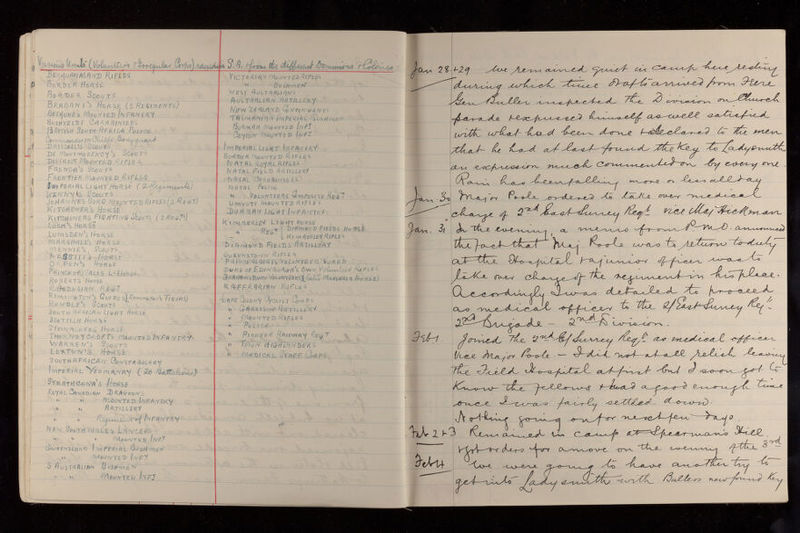 Various Units (Volunteers & Irregular Corps) S.A. from the different Dominions & Colonies
BECHUANALAND RIFLES
BORDER HORSE
BORDER SCOUTS
BRABANT'S HORSE (2 REGIMENTS)
MOUNTED INFANTRY
BUSHVELDT CARABINEERS
BRITISH SOUTH AFRICA POLICE
COMMANDER in CHIEFS Bodyguard
DRISCOLL'S SCOUTS
DE MONTMORENCY'S SCOUTS
DISTRICT MOUNTED RIFLES
FRONTIER MOUNTED RIFLES
IMPERIAL LIGHT HORSE (2 Regiments)
SCOUTS
JOHANNESBURG MOUNTED RIFLES (2 REGTS)
KITCHENER'S HORSE
KITCHENERS FIGHTING SCOUTS (2 REGTS)
LOCH'S HORSE
LUMSDEN'S HORSE
MARSHALL'S HORSE
MENNIE'S SCOUTS
NESBITT'S HORSE
ORPEN'S HORSE
PRINCE OF WALES L. HORSE
ROBERTS HORSE
RHODESIAN REGT
RIMINGTON'S GUIDES (Commonly TIGERS)
SCOUTS
SOUTH AFRICAN LIGHT HORSE
SCOTTISH HORSE
STEINAECKERS HORSE
THORNYCROFTS MOUNTED INFANTRY
WARREN'S SCOUTS
HORSE
SOUTH AFRICAN CONSTABULARY
IMPERIAL YEOMANRY (20 Battalions)
STRATHCONA'S HORSE
ROYAL CANADIAN DRAGOONS
" " MOUNTED INFANTRY
" " ARTILLERY
" Regiment of INFANTRY
NEW SOUTH WALES LANCERS
" " " MOUNTED INFT
QUEENSLAND IMPERIAL BUSHMEN
" MOUNTED INFT
S AUSTRALIAN BUSHMEN
" " MOUNTED INFT
VICTORIAN MOUNTED RIFLES
" BUSHMEN
WEST AUSTRALIANS
AUSTRALIAN ARTILLERY
NEW ZEALAND CONTINGENT
TASMANIAN IMPERIAL BUSHMEN
BURMAH MOUNTED INFT
CEYLON MOUNTED INFT
IMPERIAL LIGHT INFANTRY
BORDER MOUNTED RIFLES
NATAL ROYAL RIFLES
NATAL FIELD ARTILLERY
NATAL CARABINEERS
NATAL POLICE
" VOLUNTEERS COMPOSITE REGT
UMVOTI MOUNTED RIFLES
DURBAN LIGHT INFANTRY
KIMBERLEY LIGHT HORSE
" REGT DIAMOND FIELDS HORSE
KIMBERLEY RIFLES
DIAMOND FIELDS ARTILLERY
QUEENSTOWN RIFLES
PRINCE ALBERTS VOLUNTEER GUARD
DUKE OF EDINBURGH'S OWN VOLUNTEER RIFLES
KAFFRARIAN RIFLES
CAPE COLONY VOLUNT CORPS
" GARRISON ARTILLERY
" MOUNTED RIFLES
" POLICE
" PIONEER RAILWAY REGT
" TOWN HIGHLANDERS
" MEDICAL STAFF CORPS
Jan 28 & 29 We remained quiet in camp here resting
during which time drafts arrived from Home
Gen Buller inspected the Division on Church
parade & expressed himself as well satisfied
with what had been done & declared to the men
that he had at last found the key to Ladysmith
an expression much commented on by every one
Rain has been falling more or less all day
Jan. 30 Major Poole ordered to take over medical
charge of 2nd East Surrey Regt vice Maj Hickman
Jan. 31 In the evening, a memo from P.M.O. announced
the fact that Maj Poole was to return to duty
at the Hospital & a junior officer was to
take over charge of the regiment in his place.
Accordingly I was detailed to proceed
as medical officer to the 2/East Surrey Regt.
2nd Brigade - 2nd Division.
Feb 1 Joined the 2nd E/Surrey Regt as medical officer
vice Major Poole - I did not at all relish leaving
the Field Hospital at first but I soon got to
know the fellows & had a good enough time
once I was fairly settled down.
Nothing going on for next few days
Feb 2 & 3 Remained in camp at Spearman's Hill
& got orders for a move on the evening of the 3rd
Feb 4 We were going to have another try to
get into Ladysmith with Bullers new found Key